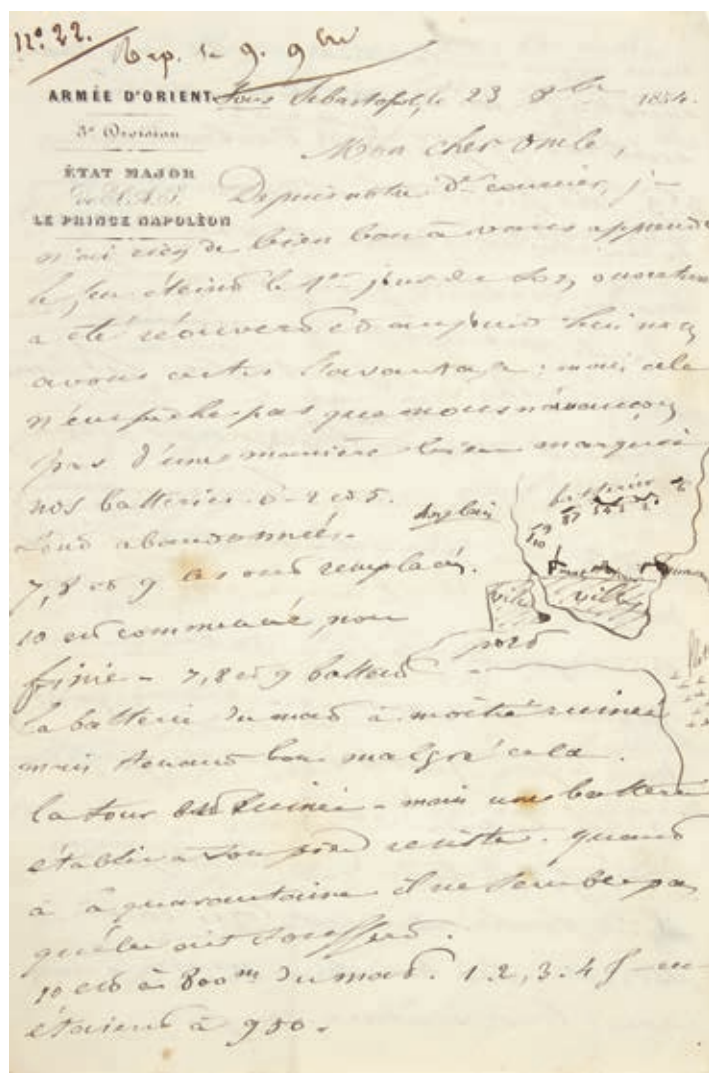 N° 22.
Rep. le 9. 9bre
ARMÉE D'ORIENT
3e Division
ÉTAT MAJOR
de S.A.I.
LE PRINCE NAPOLÉON
Sous Sebastopol, le 23 8bre 1854.
Mon cher Oncle,
Depuis notre Dr courrier, je
n'ai rien de bien bon à vous apprendre
le feu éteind le 1er jour de son ouverture
a été réouverd et aujourd'hui nous
avons certes l'avantage : mais cela
n'empêche pas que nous n'avançons
pas d'une manière bien marquée
nos batteries 2 et 5.
sond abandonnées.
7, 8 et 9 les ond remplacés.
10 est commencé, non
finie - 7, 8 et 9 battend
la batterie du mad à moitié ruinée
mais tenand bon malgré cela.
la tour est ruinée - mais une batterie
établie à son pied resiste. quand
à la quarantaine il ne semble pas
qu'elle ait soufferd.
10 est à 800m du mad. 1. 2, 3. 4
étaiend à 950.
Anglais
batteries
ville
ville
pord